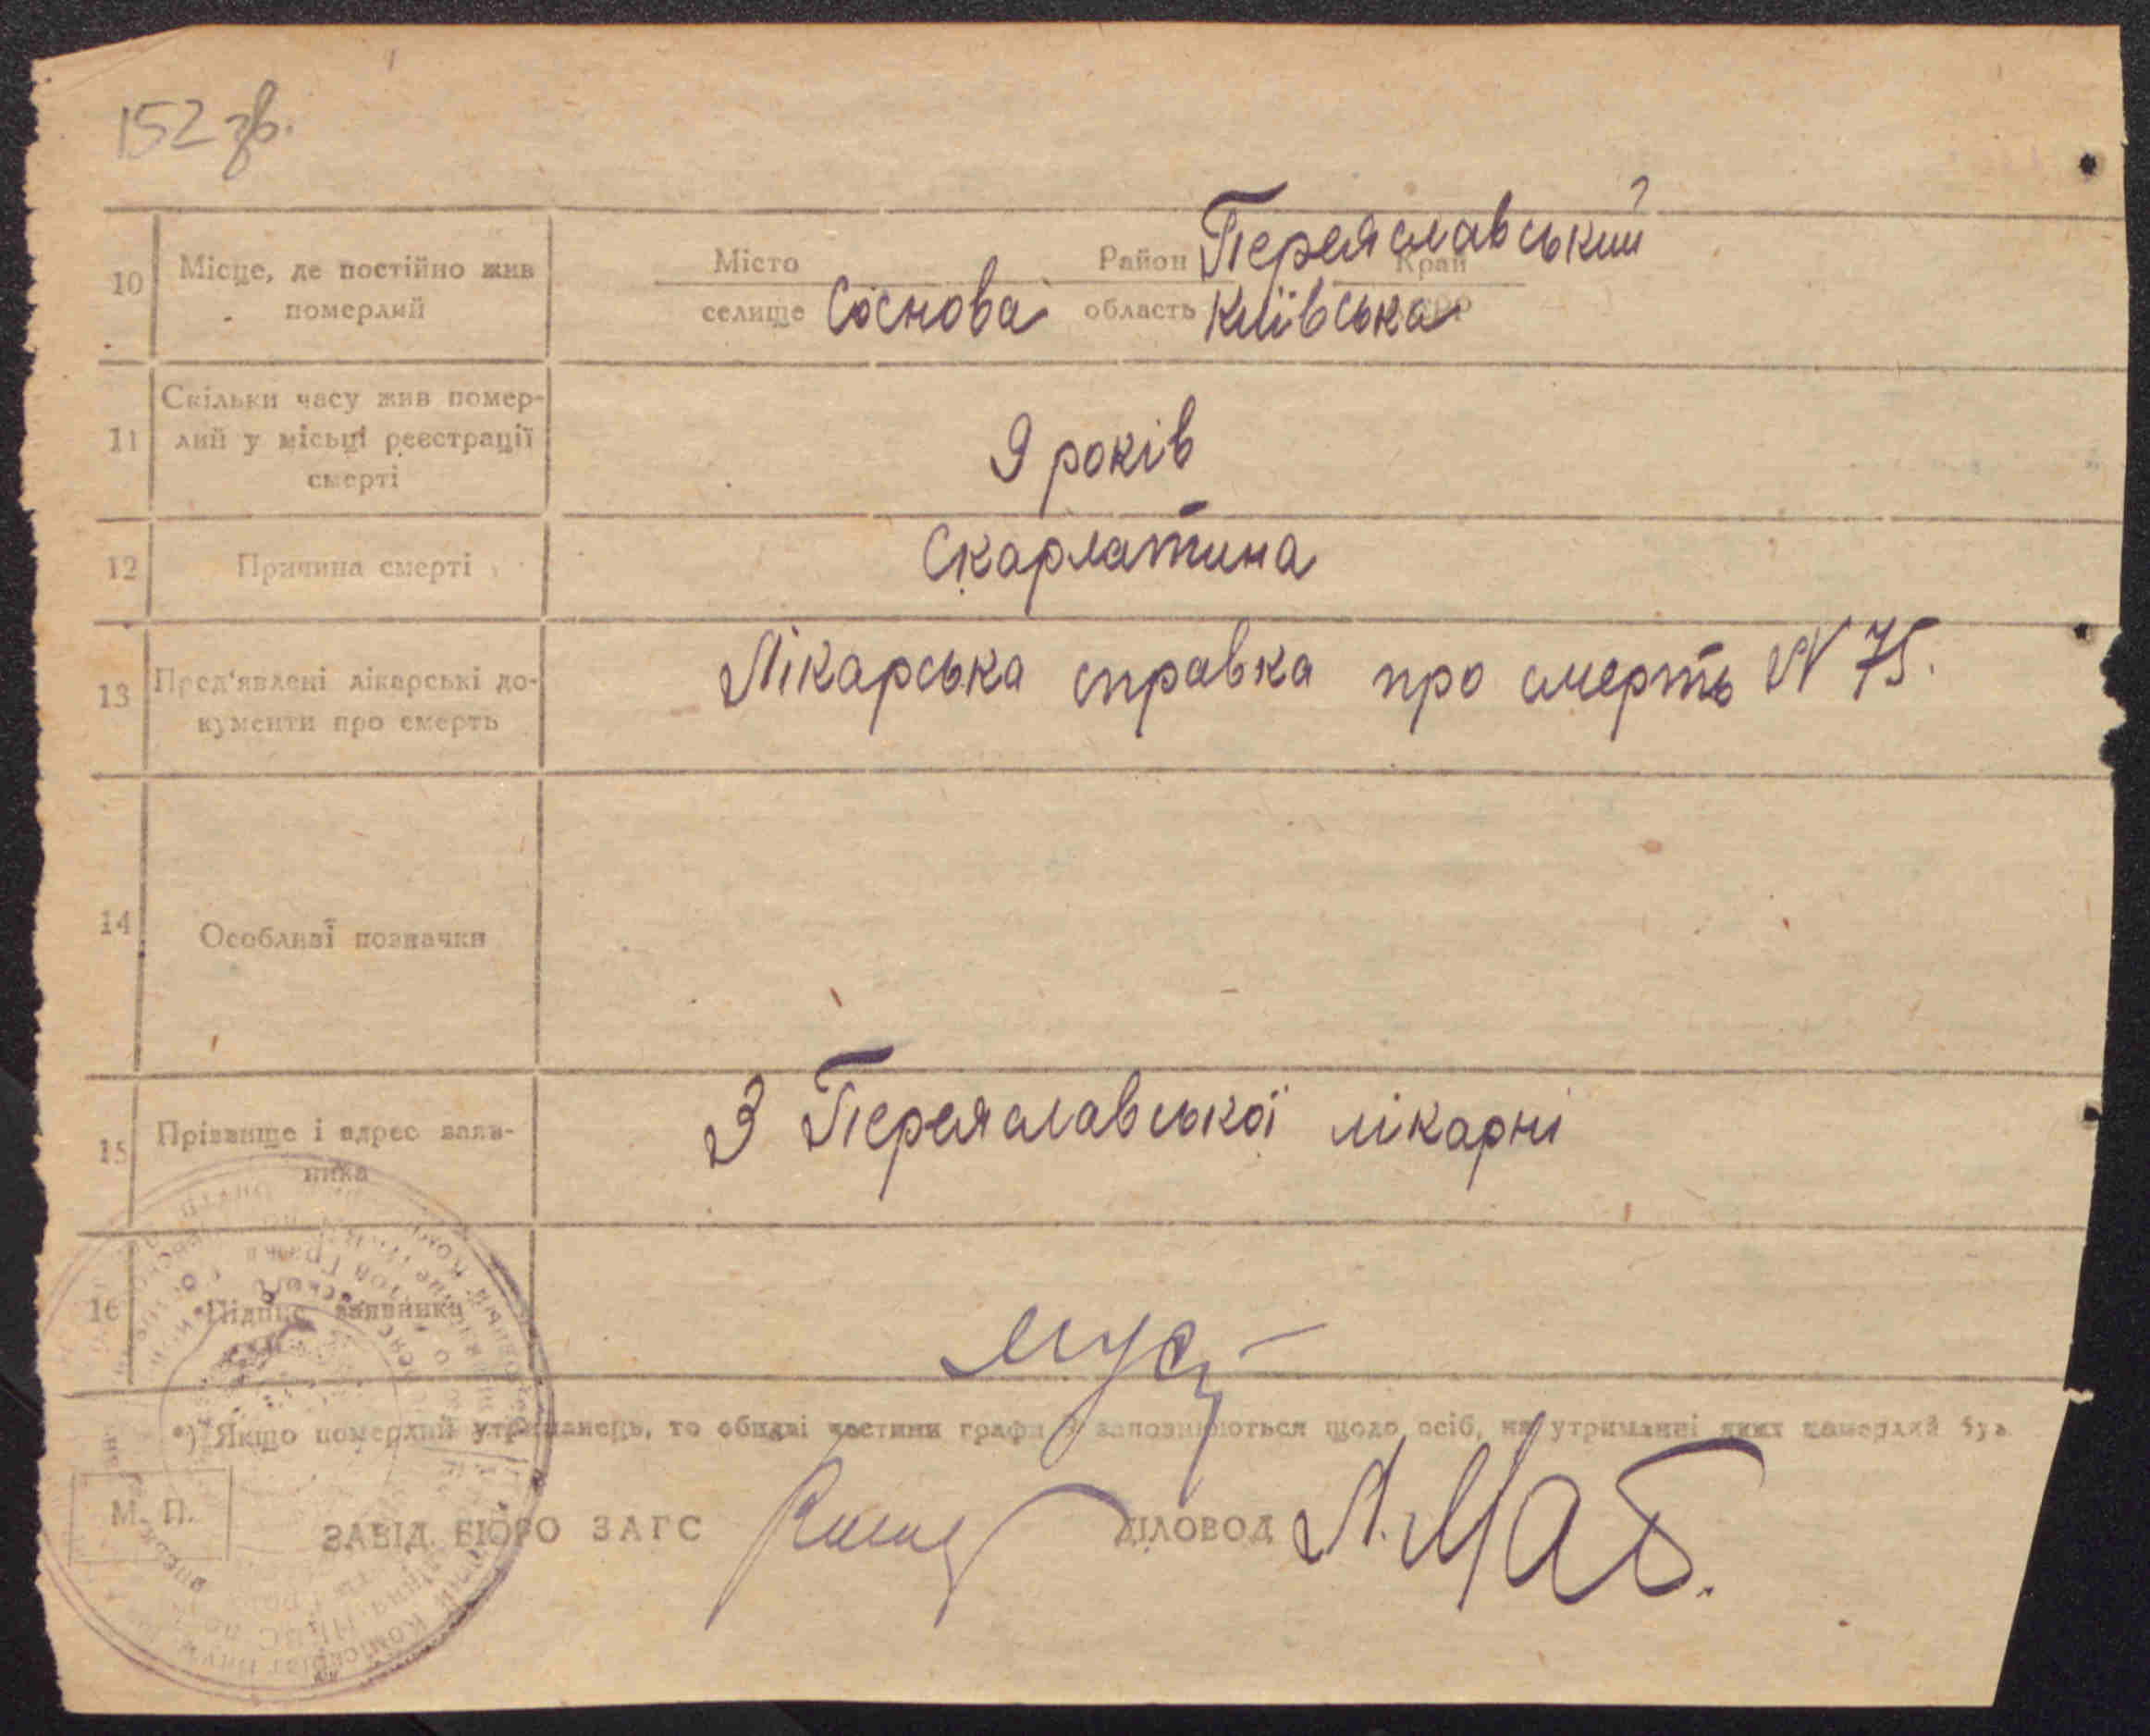 152 зв.
10 Місце, де постійно жив померлий
Місто Район Переяславський Край
селище Соснова область Київська
11 Скільки часу жив помер-
лий у місьці реєстрації
смерті
9 років
12 Причина смерті
Скарлатина
13 Пред'явлені лікарські до-
кументи про смерть
Лікарська справка про смерть N 75.
14 Особливі позначки
15 Прізвище і адрес заяв-
ника
З Переяславської лікарні
16 Підпис заявника
*) Якщо померлий утриманець, то обидві частини графи 9 заповнюються щодо осіб, на утриманні яких померлий був
М. П.
ЗАВІД. БЮРО ЗАГС ДІЛОВОД